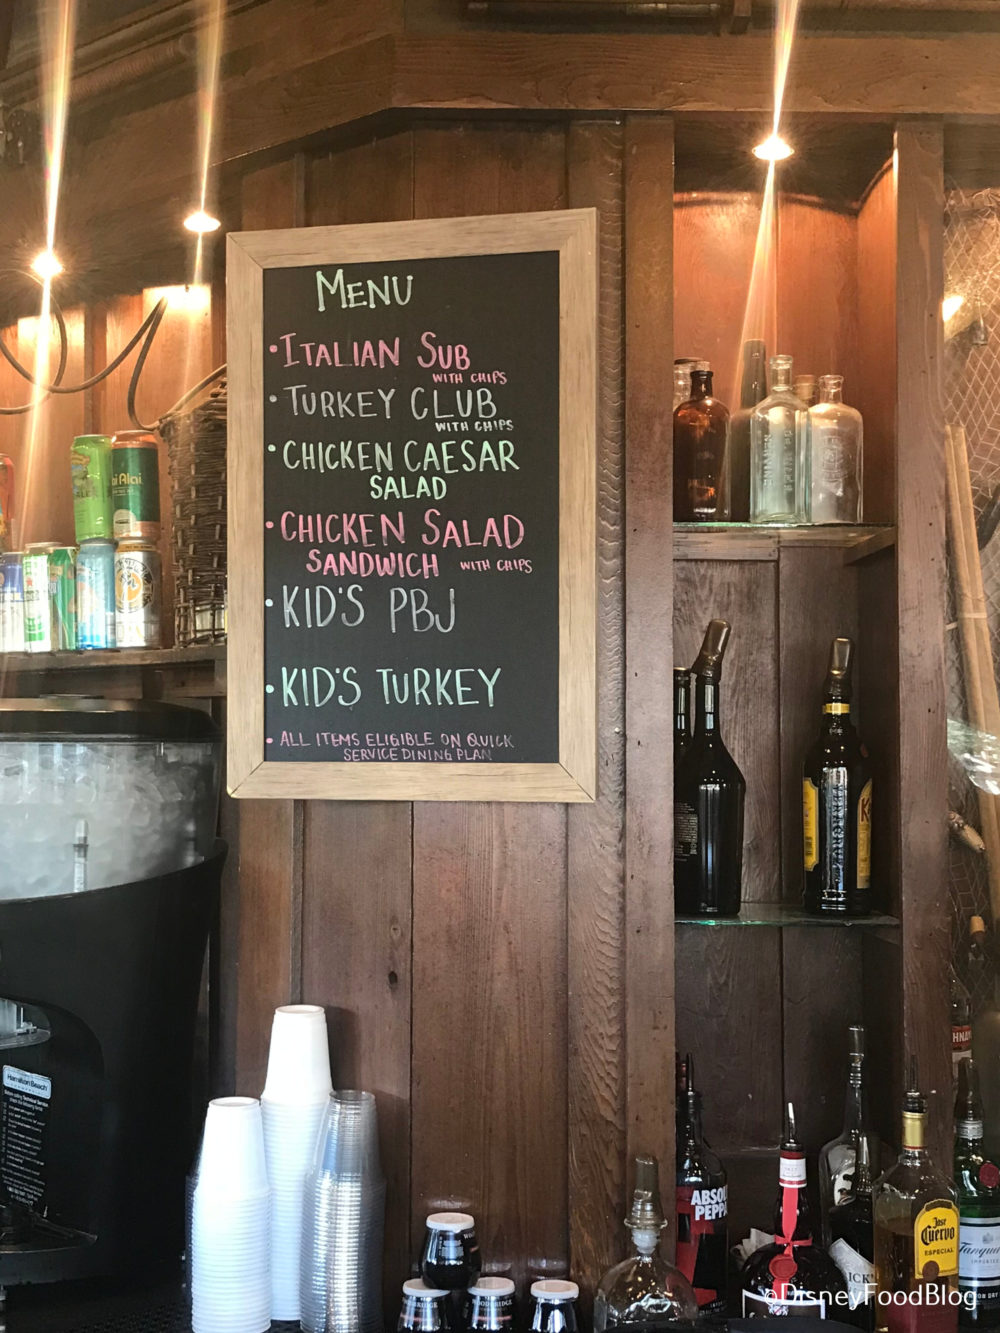 MENU
• ITALIAN SUB
WITH CHIPS
• TURKEY CLUB
WITH CHIPS
• CHICKEN CAESAR
SALAD
• CHICKEN SALAD
SANDWICH WITH CHIPS
• KID'S PBJ
• KID'S TURKEY
• ALL ITEMS ELIGIBLE ON QUICK
SERVICE DINING PLAN
Hamilton Beach
ABSOLU
PEPPA
Jose
Cuervo
ESPECIAL
Tanquer
IMPORTED
©DisneyFoodBlog